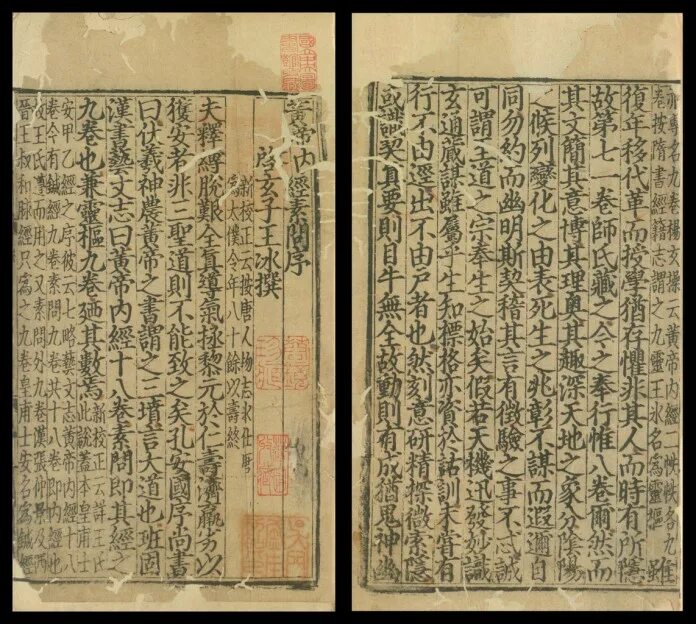 黃帝內經素問序
啓玄子王冰撰
新校正云按唐人物志冰仕唐
為太僕令年八十餘以壽終
夫釋縛脫艱全真導氣拯黎元於仁壽濟羸劣以
獲安者非三聖道則不能致之矣孔安國序尚書
曰伏羲神農黃帝之書謂之三墳言大道也班固
漢書藝文志曰黃帝內經十八卷素問即其經之
九卷也兼靈樞九卷廼其數焉新校正云詳王氏
此說蓋本皇甫士
安甲乙經之序彼云七略藝文志黃帝內經十八
卷今有鍼經九卷素問九卷共十八卷即內經也
故王氏遵而用之又素問外九卷漢張仲景及西
晉王叔和脉經只為之九卷皇甫士安名為鍼經
亦專名九卷楊玄操云黃帝內經二帙帙各九
卷按隋書經籍志謂之九靈王冰名為靈樞雖
復年移代革而授學猶存懼非其人而時有所隱
故第七一卷師氏藏之今之奉行惟八卷爾然而
其文簡其意博其理奧其趣深天地之象分陰陽
之候列變化之由表死生之兆彰不謀而遐邇自
同勿約而幽明斯契稽其言有徵驗之事不忒誠
可謂至道之宗奉生之始矣假若天機迅發妙識
玄通蕆謀雖屬乎生知標格亦資於詁訓未嘗有
行不由逕出不由戶者也然刻意研精探微索隱
或識契真要則目牛無全故動則有成猶鬼神幽